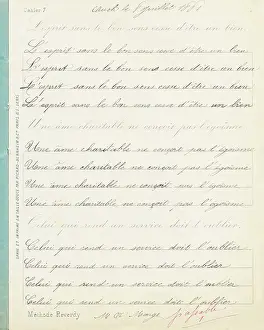 Cahier 7
Auch le 8 juillet
L'esprit sans le bon sens cesse d'être un bien
L'esprit sans le bon sens cesse d'être un bien
L'esprit sans le bon sens cesse d'être un bien
L'esprit sans le bon sens cesse d'être un bien
L'esprit sans le bon sens cesse d'être un bien
Une âme charitable ne conçoit pas l'égoïsme
Une âme charitable ne conçoit pas l'égoïsme
Une âme charitable ne conçoit pas l'égoïsme
Une âme charitable ne conçoit pas l'égoïsme
Une âme charitable ne conçoit pas l'égoïsme
Celui qui rend un service doit l'oublier
Celui qui rend un service doit l'oublier
Celui qui rend un service doit l'oublier
Celui qui rend un service doit l'oublier
Celui qui rend un service doit l'oublier
Méthode Reverdy